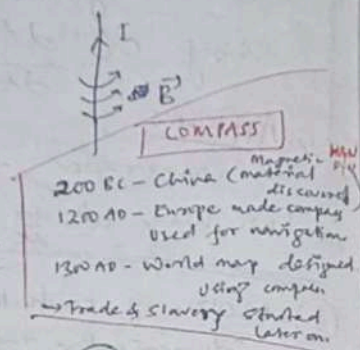 I
B
COMPASS
200 BC - China (Magnetic material
discovered
1200 AD - Europe made compass
used for navigation
1300 AD - World map designed
using compass
→ Trade & slavery started
later on.